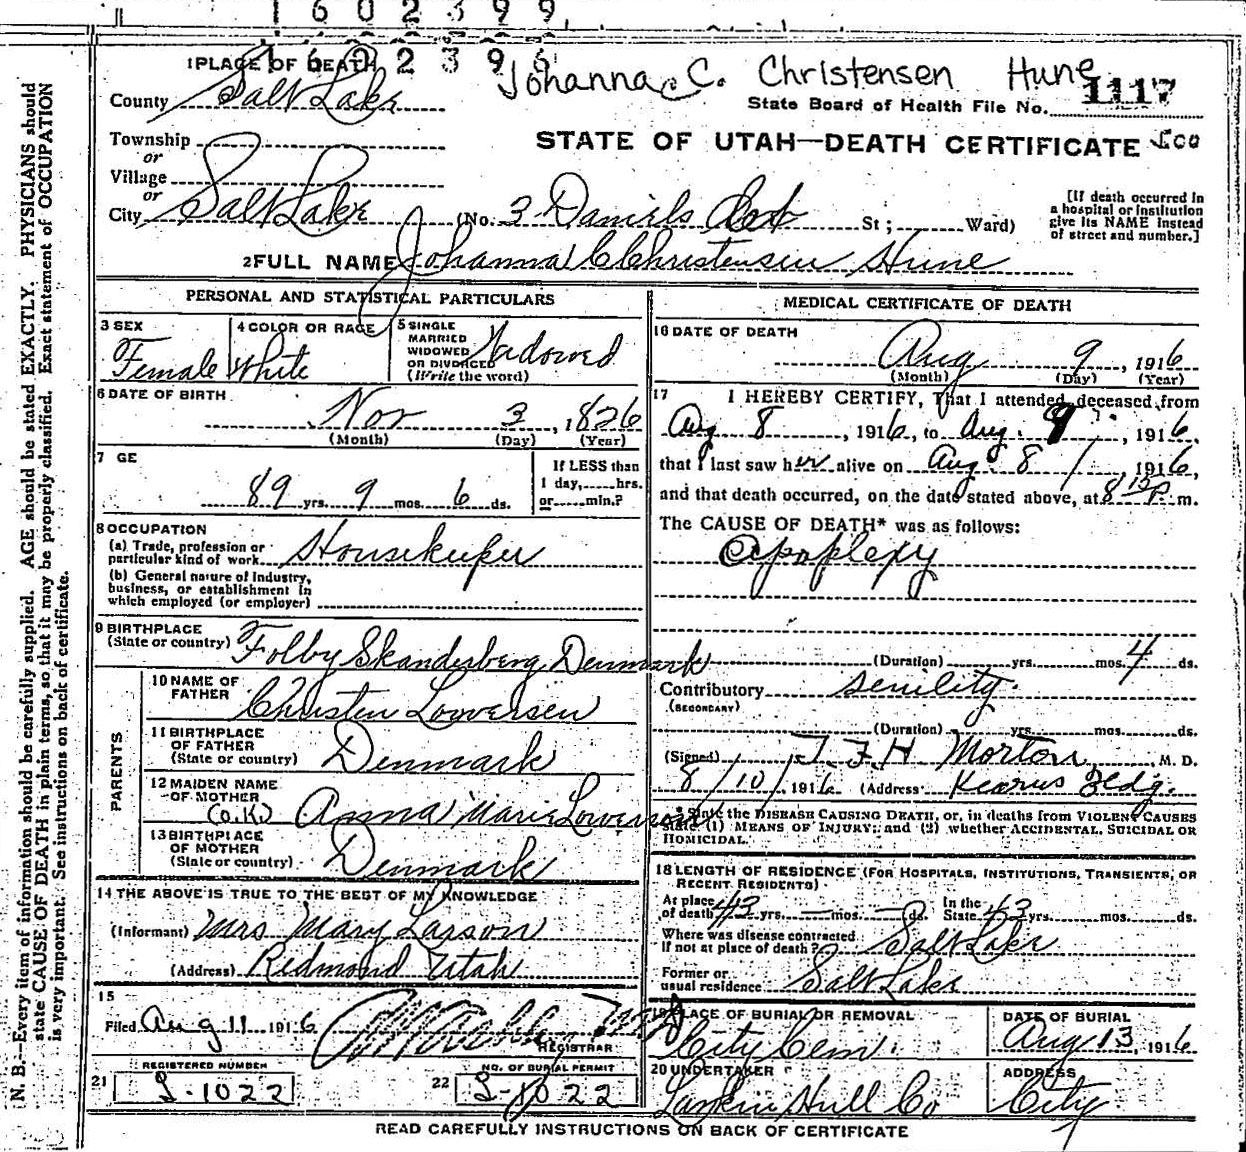 1602399
1602396
Johanna C. Christensen Hune
1 PLACE OF DEATH
County Salt Lake
State Board of Health File No. 1117
Township
or
Village
or
City Salt Lake
STATE OF UTAH—DEATH CERTIFICATE
(No. 3 Daniels St; Ward)
[If death occurred in
a hospital or institution
give its NAME instead
of street and number.]
2 FULL NAME Johanna C Christensen Hune
PERSONAL AND STATISTICAL PARTICULARS
3 SEX
Female
4 COLOR OR RACE
White
5 SINGLE
MARRIED
WIDOWED
OR DIVORCED
(Write the word)
Widowed
6 DATE OF BIRTH
Nov 3, 1826
(Month) (Day) (Year)
7 GE
89 yrs. 9 mos. 6 ds.
If LESS than
1 day, hrs.
or min.?
8 OCCUPATION
(a) Trade, profession or
particular kind of work Housekeeper
(b) General nature of Industry,
business, or establishment in
which employed (or employer)
9 BIRTHPLACE
(State or country) Folby Skanderberg Denmark
PARENTS
10 NAME OF
FATHER
Christen Lowersen
11 BIRTHPLACE
OF FATHER
(State or country) Denmark
12 MAIDEN NAME
OF MOTHER
(O.K.) Anna Marie Lowerson
13 BIRTHPLACE
OF MOTHER
(State or country) Denmark
14 THE ABOVE IS TRUE TO THE BEST OF MY KNOWLEDGE
(Informant) Mrs Mary Larson
(Address) Redmond Utah
15
Filed Aug 11 1916
REGISTRAR
REGISTERED NUMBER
21 S-1022
NO. OF BURIAL PERMIT
22 S-1022
MEDICAL CERTIFICATE OF DEATH
16 DATE OF DEATH
Aug 9, 1916
(Month) (Day) (Year)
17 I HEREBY CERTIFY, That I attended deceased from
Aug 8, 1916, to Aug. 9, 1916,
that I last saw her alive on Aug. 8, 1916,
and that death occurred, on the date stated above, at 8 15 P m.
The CAUSE OF DEATH* was as follows:
Apoplexy
(Duration) yrs. mos. 4 ds.
Contributory senility.
(SECONDARY)
(Duration) yrs. mos. ds.
(Signed) T. F. H Morton, M. D.
8/10/, 1916 (Address) Kearns Bldg.
*State the DISEASE CAUSING DEATH, or, in deaths from VIOLENT CAUSES
state (1) MEANS OF INJURY; and (2) whether ACCIDENTAL, SUICIDAL OR
HOMICIDAL.
18 LENGTH OF RESIDENCE (FOR HOSPITALS, INSTITUTIONS, TRANSIENTS, OR
RECENT RESIDENTS)
At place
of death 43 yrs. — mos. — ds.
In the
State 43 yrs. mos. ds.
Where was disease contracted
if not at place of death? Salt Lake
Former or
usual residence Salt Lake
19 PLACE OF BURIAL OR REMOVAL
City Cem.
DATE OF BURIAL
Aug 13, 1916
20 UNDERTAKER
Larkin Hull Co
ADDRESS
City
READ CAREFULLY INSTRUCTIONS ON BACK OF CERTIFICATE
N. B.—Every item of information should be carefully supplied. AGE should be stated EXACTLY. PHYSICIANS should
state CAUSE OF DEATH in plain terms, so that it may be properly classified. Exact statement of OCCUPATION
is very important. See instructions on back of certificate.